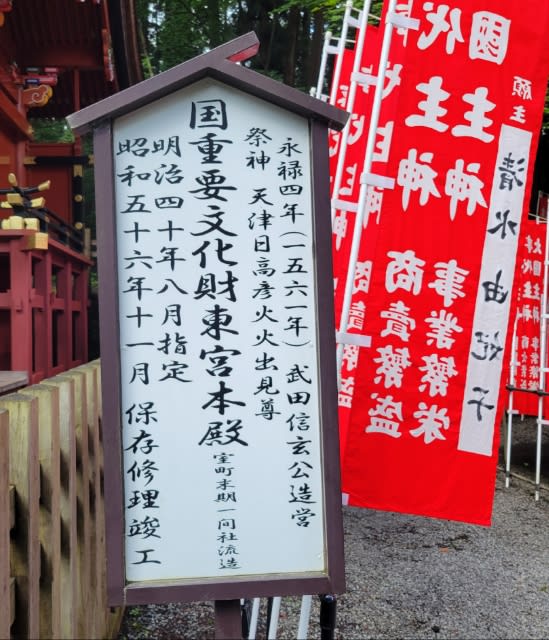 永禄四年(一五六一年) 武田信玄公造営
祭神 天津日高彦火火出見尊
国重要文化財東宮本殿 室町末期一間社流造
明治四十年八月指定
昭和五十六年十一月 保存修理竣工
国主神 事業繁栄
代主神 商売繁盛
願主 清水由妃子